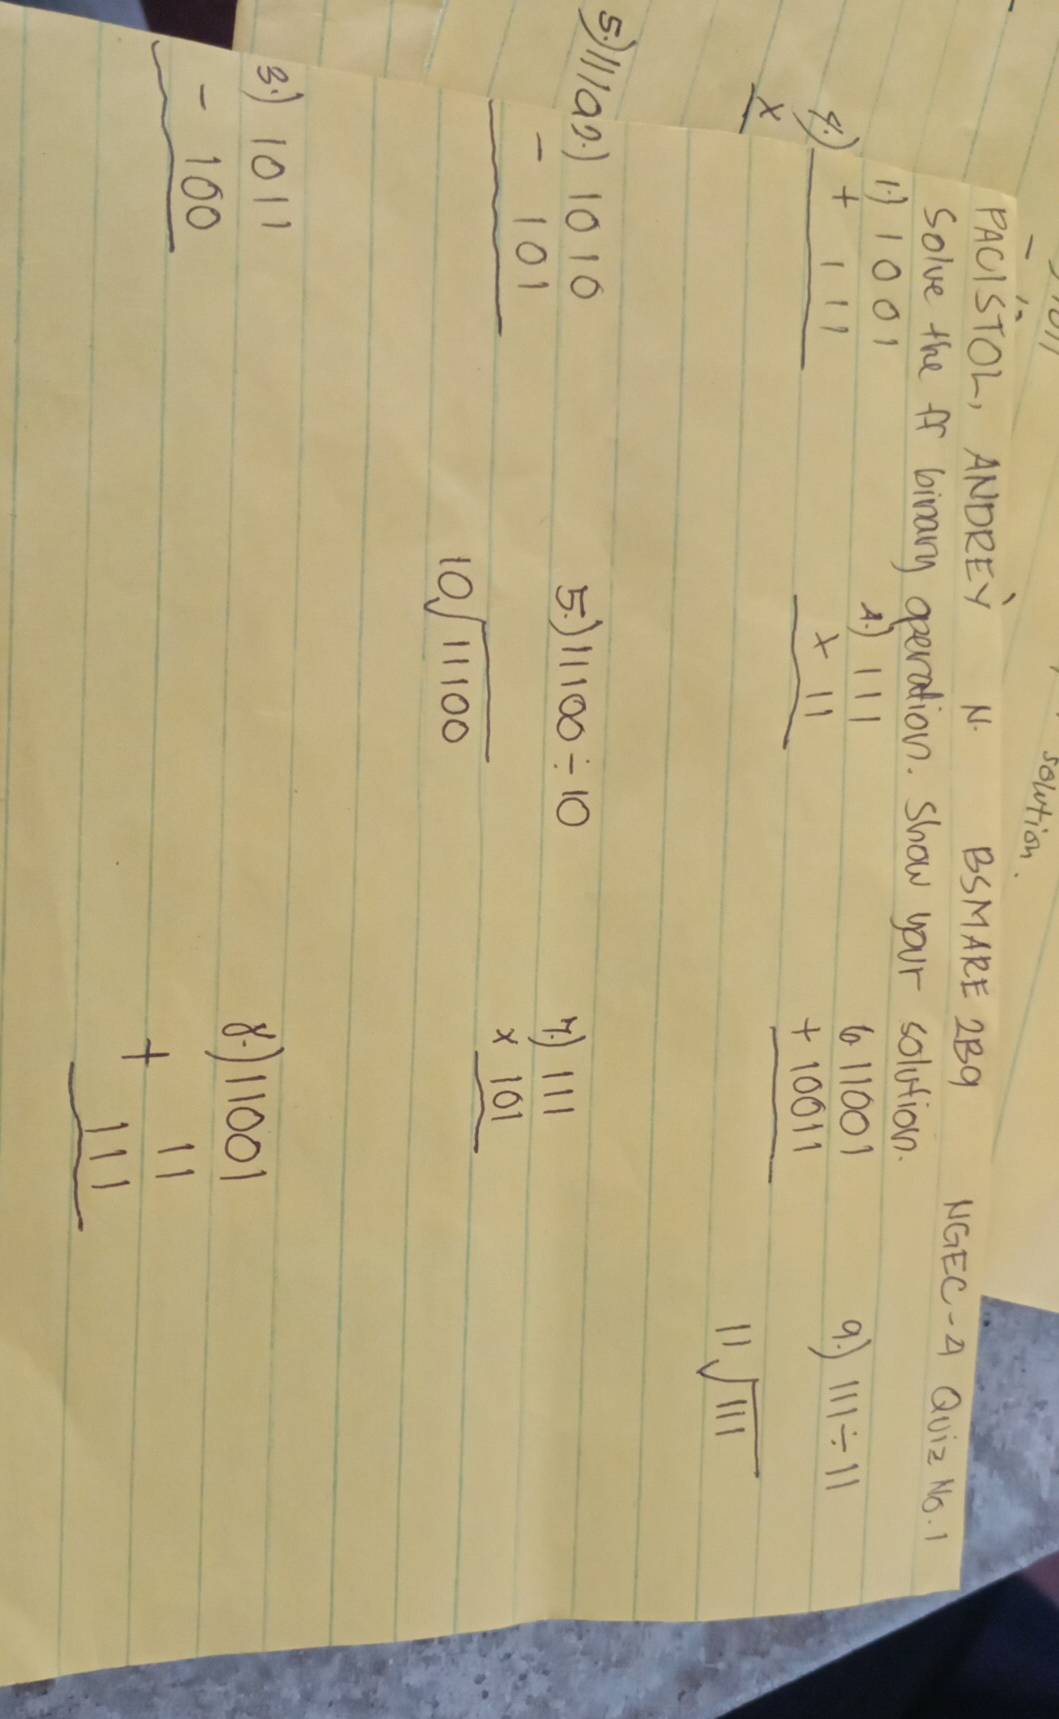 solution.
4.)
x
5.) 111
PACISTOL, ANDREY N. BSMARE 2B9 NGEC-A Quiz No. 1
Solve the ff binary operation. Show your solution.
1.) 1001
+ 111
2.) 1010
- 101
3.) 1011
- 100
4.) 111
x 11
5.) 11100 ÷ 10
10√11100
6 11001
+ 10011
7.) 111
x 101
8.) 11001
11
+ 111
9.) 111 ÷ 11
11√111